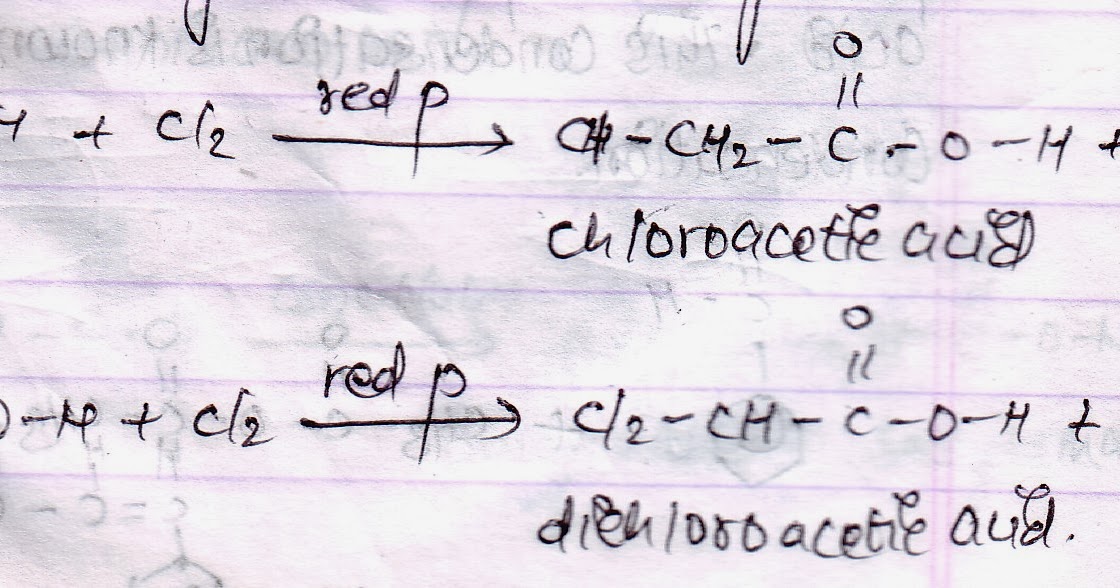 O
||
H + Cl2 red p → Cl-CH2-C-O-H +
chloroacetic acid
O
||
O-H + Cl2 red p → Cl2-CH-C-O-H +
dichloroacetic acid.